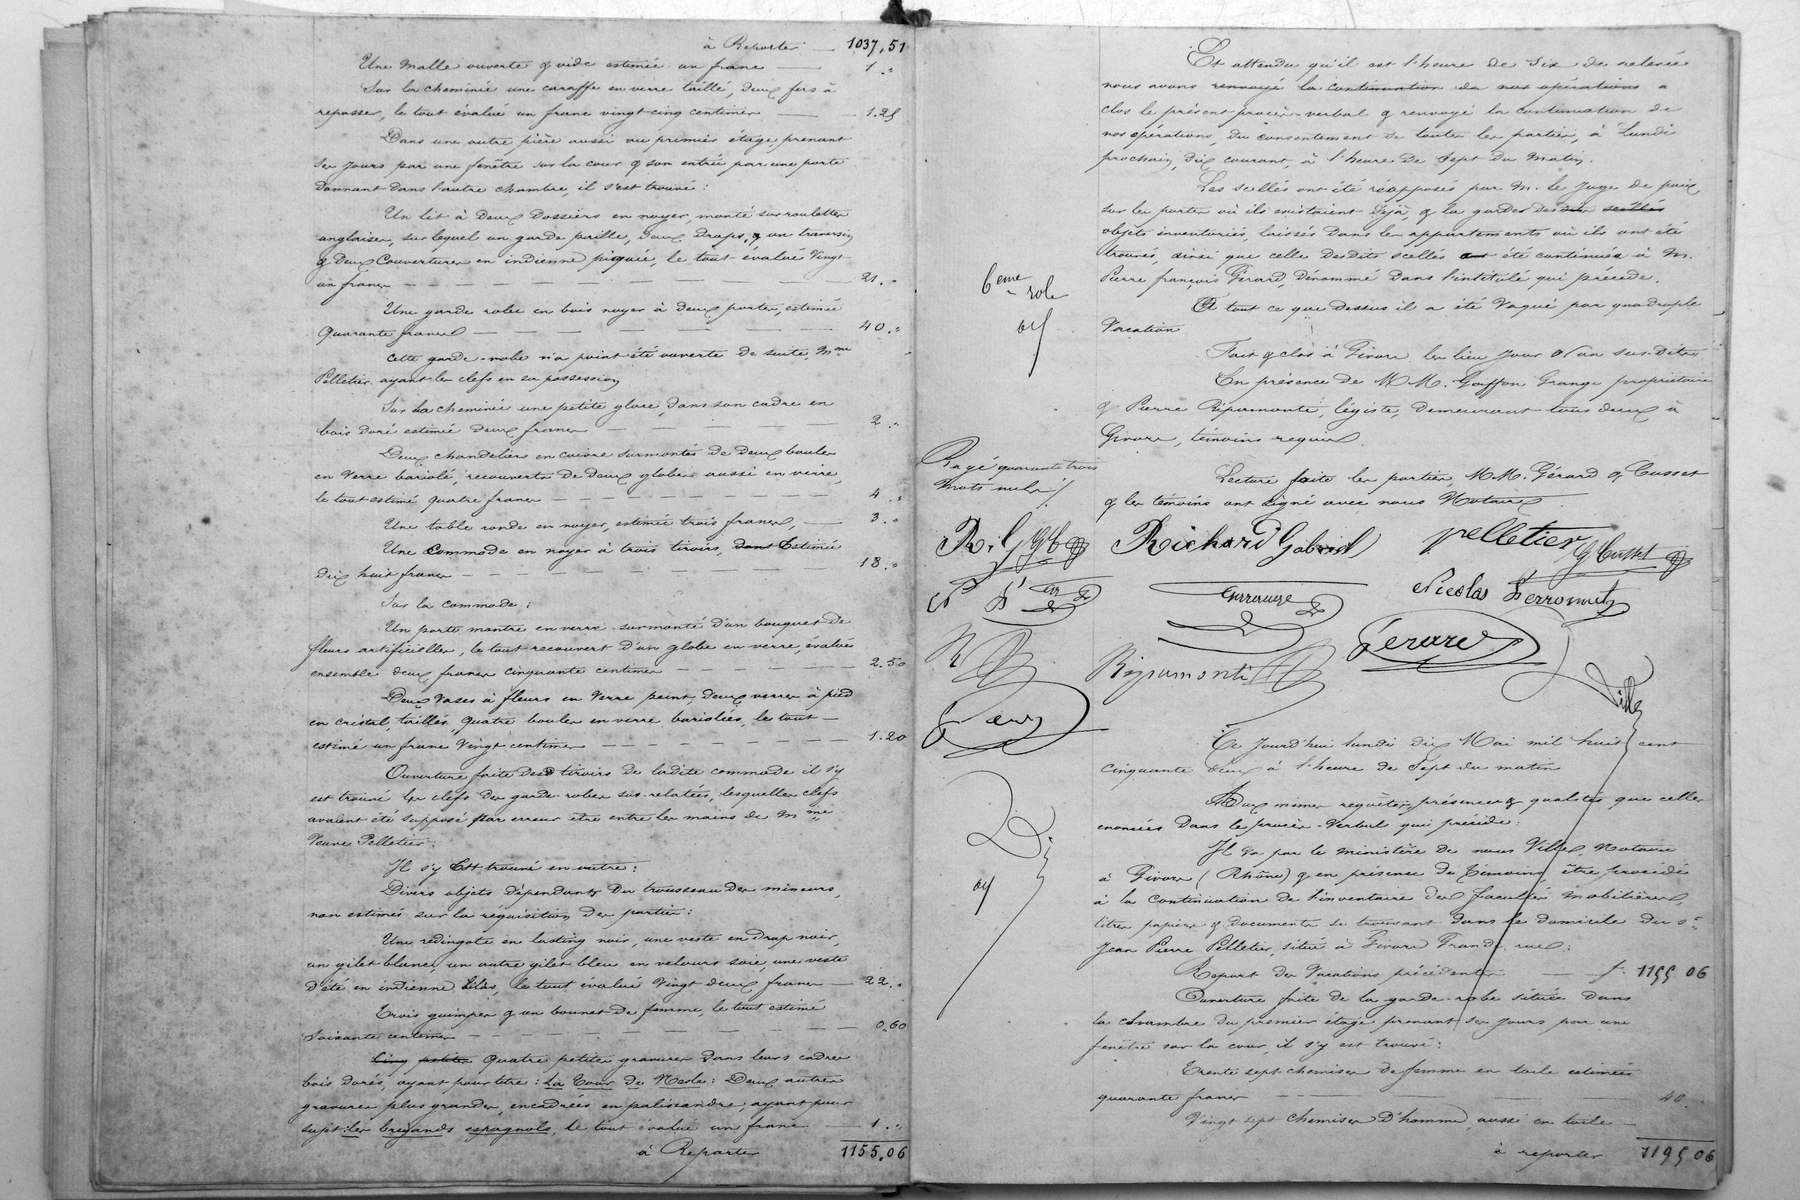 à Reporter — 1037,51
Une Malle ouverte & vide estimée un franc — 1."
Sur la cheminée une caraffe en verre taillé, deux fers à
repasser, le tout évalué un franc vingt cinq centimes — 1.25
Dans une autre pièce aussi au premier étage, prenant
ses jours par une fenêtre sur la cour & son entrée par une porte
donnant dans l'autre chambre, il s'est trouvé :
Un lit à deux dossiers en noyer, monté sur roulettes
anglaises, sur lequel un garde paille, deux draps, & un traversin
& deux couvertures en indienne piquée, le tout évalué Vingt
un francs — 21."
Une garde robe en bois noyer à deux portes, estimée
Quarante francs — 40."
Cette garde-robe n'a point été ouverte de suite, Mme
Pelletier ayant les clefs en sa possession
Sur la cheminée une petite glace, dans son cadre en
bois doré estimée deux francs — 2."
Deux chandeliers en cuivre surmontés de deux boules
en Verre bariolé, recouverts de deux globes aussi en verre,
le tout estimé quatre francs — 4."
Une table ronde en noyer, estimée trois francs, — 3."
Une Commode en noyer à trois tiroirs, dont Estimée
dix huit francs — 18."
Sur la commode :
Un porte montre en verre surmonté d'un bouquet de
fleurs artificielles, le tout recouvert d'un globe en verre, évalués
ensemble deux francs cinquante centimes — 2.50
Deux Vases à fleurs en Verre peint, deux verres à pied
en cristal, taillés, quatre boules en verre bariolées, le tout —
estimé un franc Vingt centimes — 1.20
Ouverture faite des tiroirs de ladite commode il s'y
est trouvé les clefs des garde-robes sus-relatées, lesquelles clefs
avaient été supposé par erreur être entre les mains de Mme
Veuve Pelletier.
Il s'y Est trouvé en outre :
Divers objets dépendants du trousseau des mineurs,
non estimés sur la réquisition des parties :
Une redingote en lasting noir, une veste en drap noir,
un gilet blanc, un autre gilet bleu en velours soie, une veste
d'été en indienne lilas, le tout évalué Vingt deux francs — 22."
Trois guimpes & un bonnet de femme, le tout estimé
Soixante centimes — 0.60
Cinq petites Quatre petites gravures dans leurs cadres
bois dorés, ayant pour titre : La Tour de Nesle : Deux autres
gravures plus grandes, encadrées en palissandre, ayant pour
sujet : les brigands espagnols, le tout évalué un franc — 1."
à Reporter 1155.06
Et attendu qu'il est l'heure de Six de relevée
nous avons renvoyé la continuation de nos opérations a
clos le présent procès-verbal & renvoyé la continuation de
nos opérations, du consentement de toutes les parties, à Lundi
prochain, dix courant, à l'heure de Sept du Matin.
Les scellés ont été réapposés par M. le Juge de paix,
sur les portes où ils existaient déjà, & la garde des dits scellés
objets inventoriés, laissés dans les appartements où ils ont été
trouvés, ainsi que celle desdits scellés ont été continuée à M.
Pierre françois Gérard, dénommé dans l'intitulé qui précède.
A tout ce que dessus il a été Vaqué par quadruple
Vacation
6eme
role
Fait & clos à Givors, les lieu, jour & an susdits
En présence de MM. Goiffon Grange propriétaire
& Pierre Ripamonti, légiste, demeurant tous deux à
Givors, témoins requis.
Rayé quarante trois
mots nuls
Lecture faite les parties, MM. Gérard & Cusset
& les témoins ont signé avec nous Notaire
R. G
Richard Gabriel
Pelletier
G Cusset
Nicolas Perronnet
Gerard
Ripamonti
Ville
Ce jourd'hui lundi dix Mai mil huit cent
cinquante deux à l'heure de Sept du matin
Aux mêmes requêtes, présences & qualités que celles
énoncées dans le procès-Verbal qui précède :
Il va par le ministère de nous Ville Notaire
à Givors (Rhône) & en présence de Témoins être procédé
à la continuation de l'inventaire des facultés mobilières,
titres papiers & documents se trouvant dans le domicile du Sr
Jean Pierre Pelletier, situé à Givors Grande rue :
Report des Vacations précédentes — f. 1155 06
Ouverture faite de la garde-robe située dans
la chambre du premier étage prenant ses jours par une
fenêtre sur la cour, il s'y est trouvé :
Trente sept chemises de femme en toile estimées
quarante francs — 40."
Vingt sept chemises d'homme, aussi en toile —
à reporter 1195 06